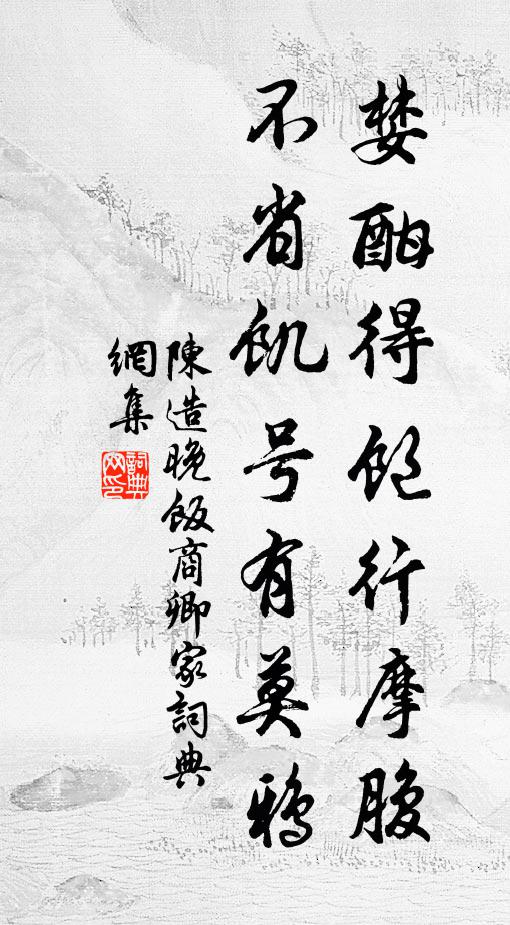 婪酣得飽行摩腹
不省飢号有莫鴉
陳造晚飯商卿家詞典
網集
詞典
网印